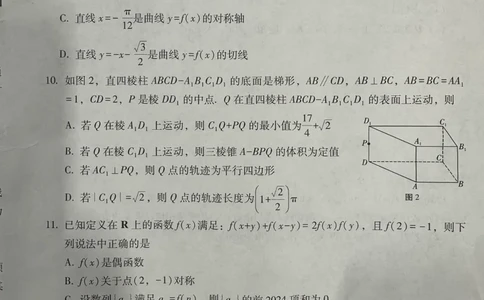 C. 直线 x=-π/12 是曲线 y=f(x) 的对称轴
D. 直线 y=-x-√3/2 是曲线 y=f(x) 的切线
10. 如图 2, 直四棱柱 ABCD-A₁B₁C₁D₁ 的底面是梯形, AB∥CD, AB⊥BC, AB=BC=AA₁
=1, CD=2, P 是棱 DD₁ 的中点. Q 在直四棱柱 ABCD-A₁B₁C₁D₁ 的表面上运动, 则
A. 若 Q 在棱 A₁D₁ 上运动, 则 C₁Q+PQ 的最小值为 17/4+√2
B. 若 Q 在棱 C₁D₁ 上运动, 则三棱锥 A-BPQ 的体积为定值
C. 若 AC₁⊥PQ, 则 Q 点的轨迹为平行四边形
D. 若|C₁Q|=√2, 则 Q 点的轨迹长度为(1+√2/2)π
D₁ C₁
P A₁ B₁
D C
A B
图 2
11. 已知定义在 R 上的函数 f(x) 满足: f(x+y)+f(x-y)=2f(x)f(y), 且 f(2)=-1, 则下
列说法中正确的是
A. f(x) 是偶函数
B. f(x) 关于点(2, -1)对称